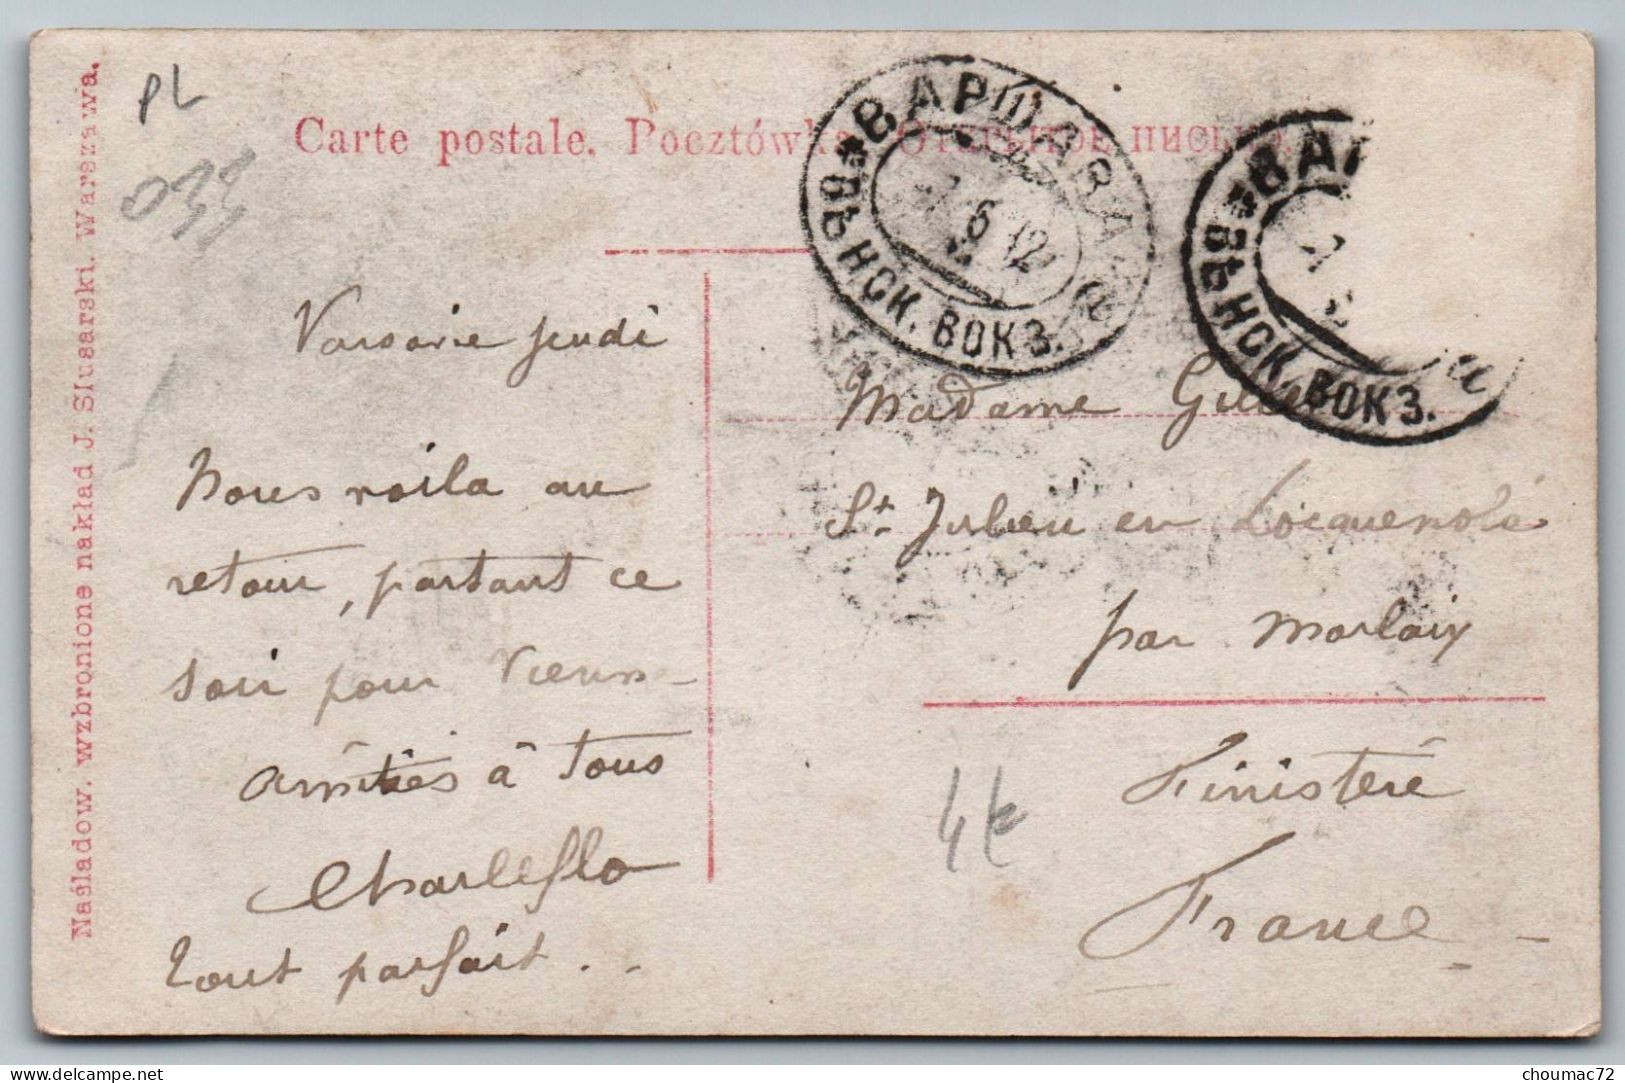 Carte postale. Pocztówka. Открытое письмо.
Nasladow. wzbronione nakład J. Slusarski. Warszawa.
PL
ВАРШАВА
6 12
ВѢНСК. ВОКЗ.
ВАР
ВѢНСК. ВОКЗ.
Varsovie jeudi
Nous voila au
retour, partant ce
soir pour Vienne
Amitiés à Tous
Tout parfait . .
Madame
St Julien en Locquenolé
par Morlaix
Finistère
France
4€
choumac72